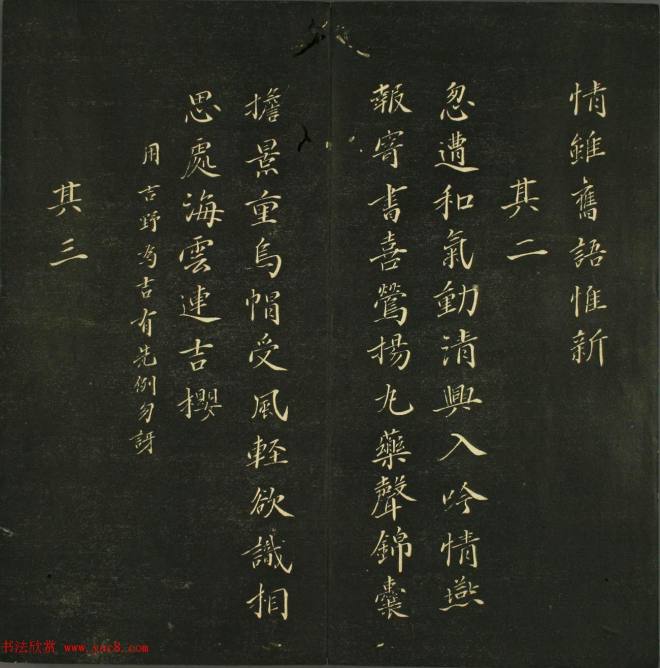 情雖舊語惟新
其二
忽遭和氣動清興入吟情燕
報寄書喜鶯揚丸藥聲錦囊
擔景重烏帽受風輕欲識相
思處海雲連吉櫻
用吉野為吉有先例勿訝
其三
书法欣赏 www.yac8.com